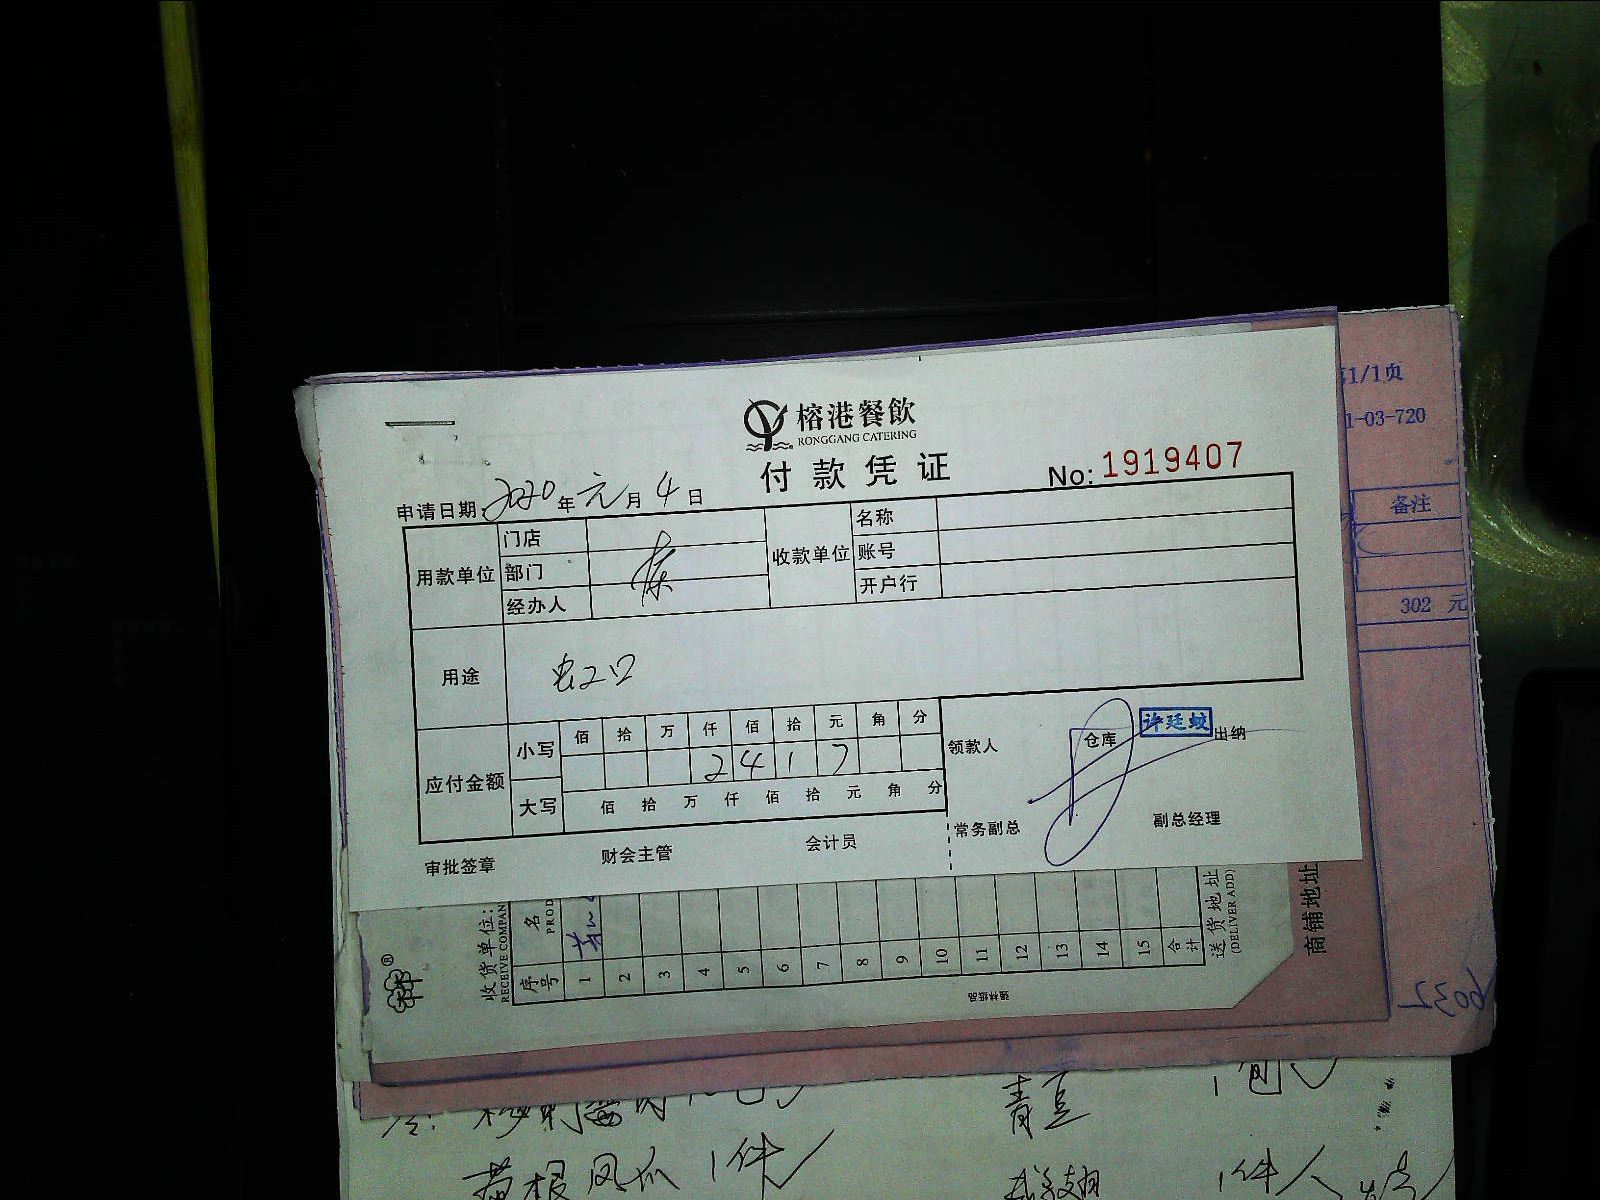 榕港餐飲
RONGGANG CATERING
付款凭证
No: 1919407
申请日期: 2020年元月4日
用款单位 门店
部门
经办人
收款单位 名称
账号
开户行
用途
应付金额 小写 佰 拾 万 仟 佰 拾 元 角 分
2 4 1 7
大写 佰 拾 万 仟 佰 拾 元 角 分
领款人 仓库 许廷蛟 出纳
常务副总 副总经理
审批签章 财会主管 会计员
1/1页
1-03-720
备注
302 元
收货单位:
RECEIVE COMPAN
序号 1 2 3 4 5 6 7 8 9 10 11 12 13 14 15 合计
名
PROD
送货地址
(DELIVER ADD)
商铺地址
6032
青豆 1包
凤爪 1件
1件